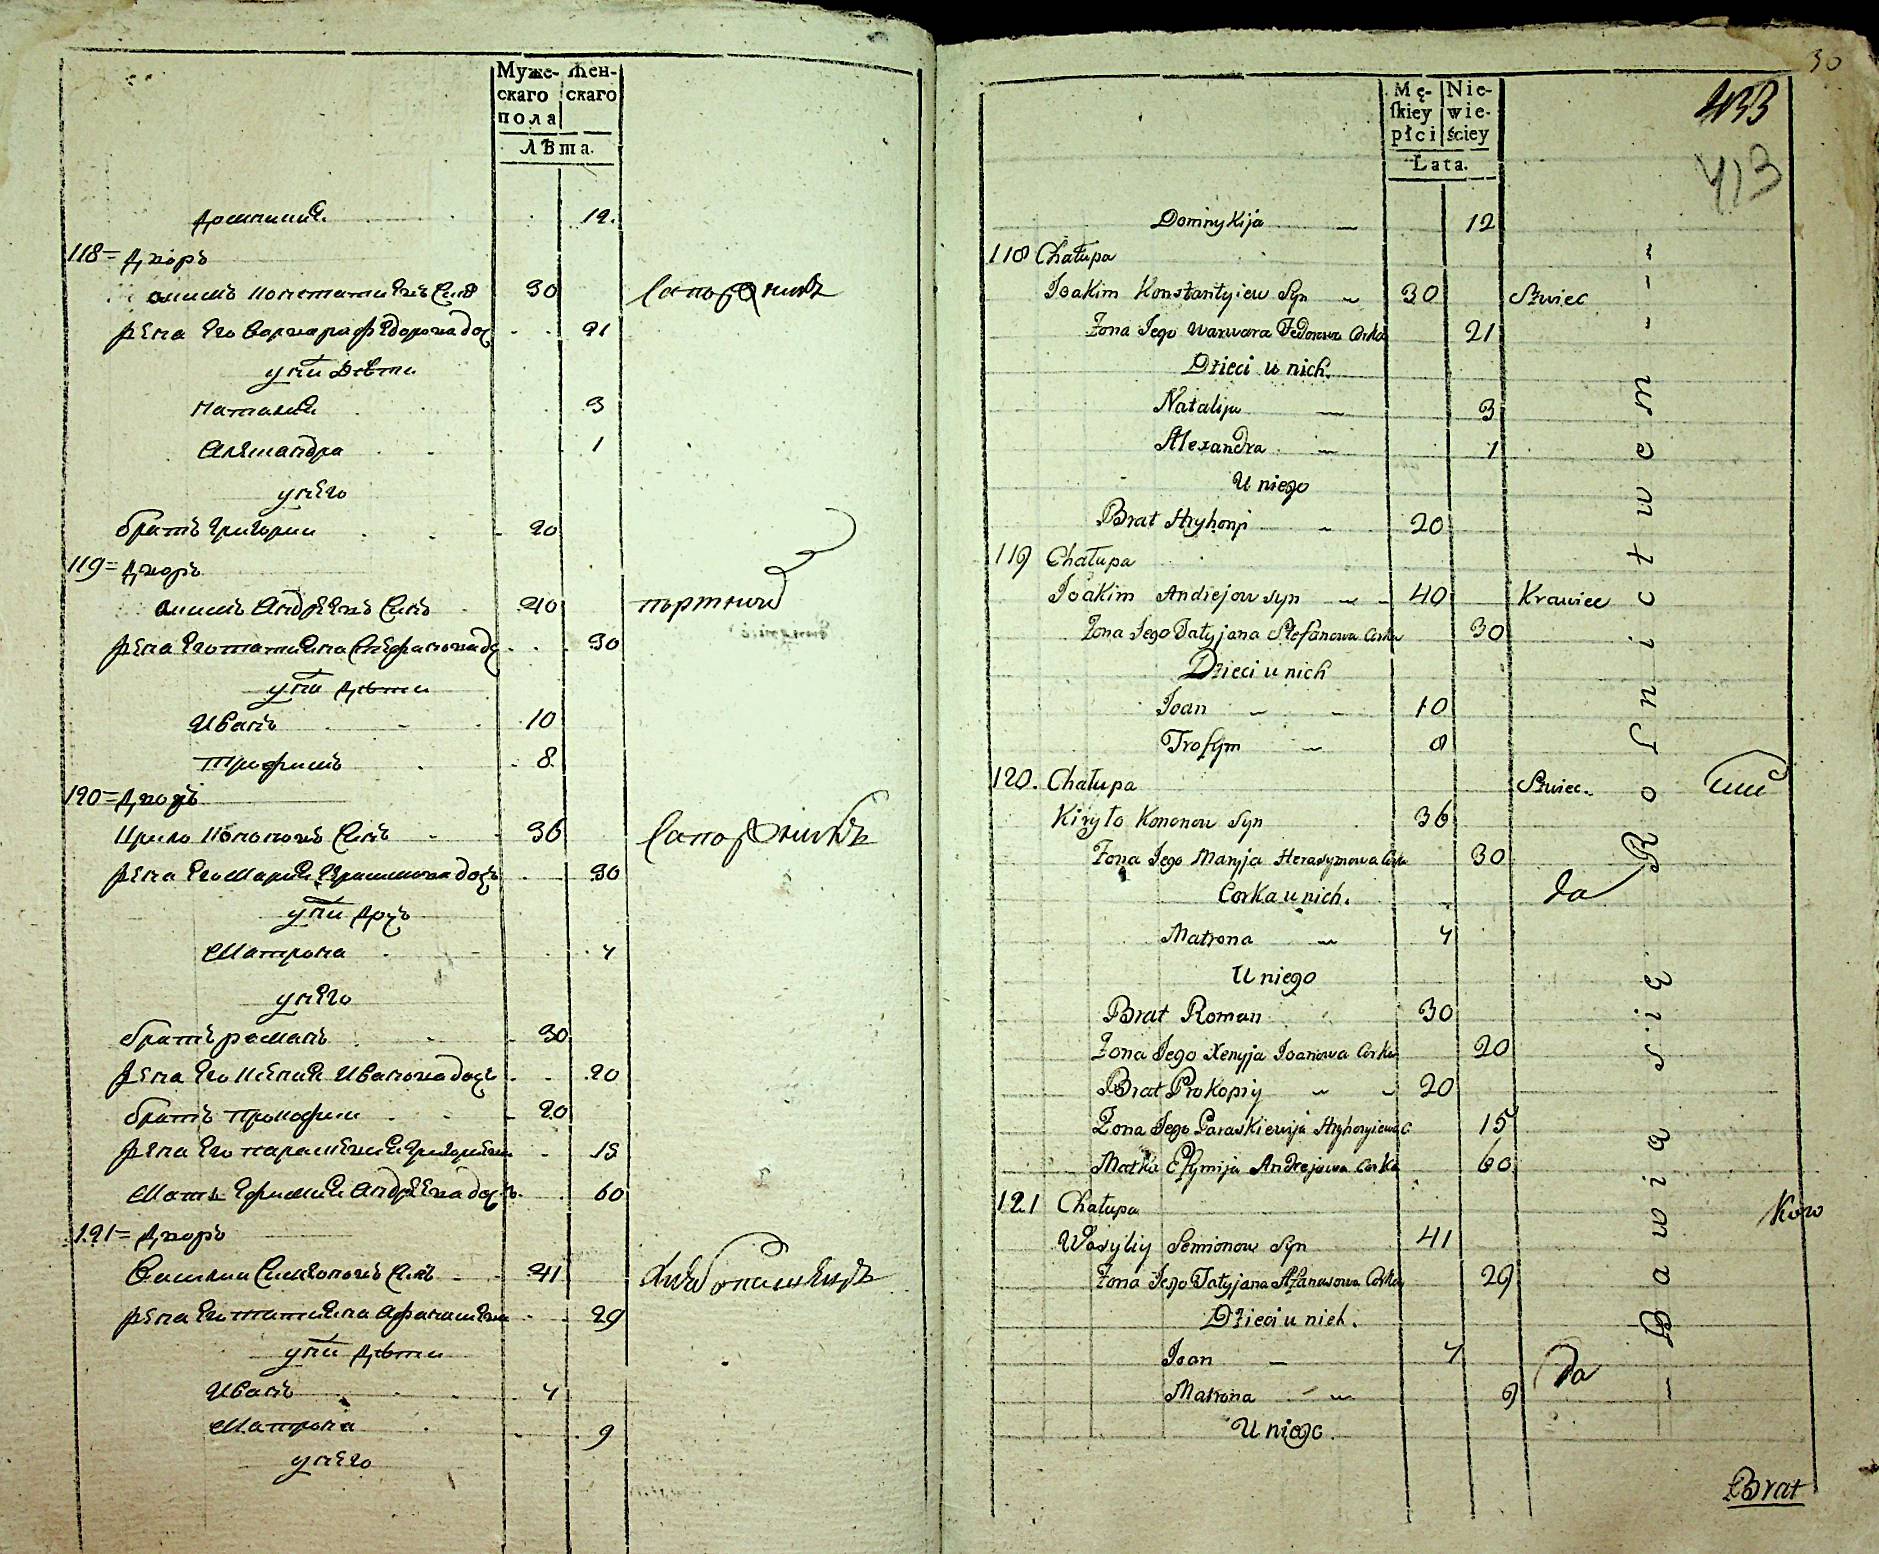 Муже- Жен-
скаго скаго
пола
лѣта.
Домникия 12.
118= Дворъ
Акимъ Константиевъ Сынъ 30 Сапожникъ
Жена Его Варвара Федорова доч 21
у них Дѣти
Наталия 3
Александра 1
у него
братъ Григории 20
119= Дворъ
Акимъ Андреевъ Сынъ 40 портной
Жена Его татияна Стефанова доч 30
у них Дѣти
Иванъ 10
Трофимъ 8
120= Дворъ
Кирило Кононовъ Сынъ 36 Сапожникъ
Жена Его Мария Герасимова дочь 30
у них Дочь
Матрона 4
у него
братъ романъ 30
Жена Его Ксения Иванова дочь 20
братъ прокофии 20
Жена Его параскевия Григориева 15
Мать Ефимия Андреева дочь 60
121= Дворъ
Василии Симеоновъ Сынъ 41 Хлебопашецъ
Жена Его татияна Афанасиева 29
у них Дѣти
Иванъ 4
Матрона 9
у него
30
Mę- Nie-
skiey wie-
płci ściey
Lata.
433
413
Domnykija 12
118 Chałupa
Joakim Konstantyiew Syn 30 Szwiec
Żona Jego Warwara Fedorowa Corka 21
Dzieci u nich.
Natalija 3
Alexandra 1
U niego
Brat Hryhoryi 20
119 Chałupa
Joakim Andiejow syn 40 Krawiec
Żona Jego Tatyjana Stefanowa Corka 30
Dzieci u nich
Joan 10
Trofym 8
120. Chałupa Szwiec.
Kiryło Kononow Syn 36
Żona Jego Maryja Herasymowa Corka 30
Corka u nich.
Matrona 4
U niego
Brat Roman 30
Żona Jego Xenyja Joanowa Corka 20
Brat Prokopiy 20
Żona Jego Paraskiewija Hryhoryiewa C 15
Matka Efymija Andrejowa Corka 60
121 Chałupa
Wasyliy Semionow Syn 41
Żona Jego Tatyjana Afanasowa Corka 29
Dzieci u nich.
Joan 4
Matrona 9
U niego.
Bawią się Rolnictwem
Brat